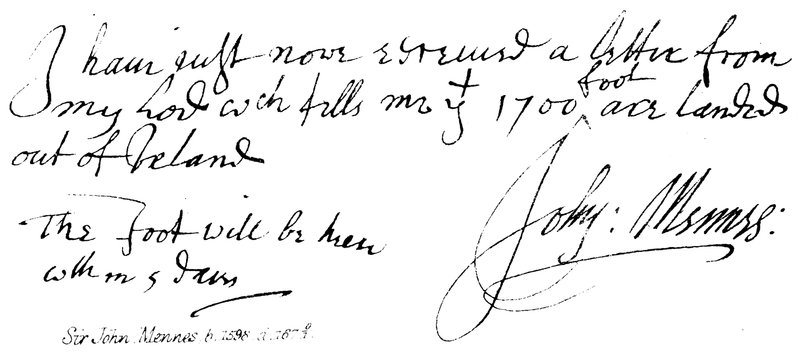 I haue iust nowe receiued a letter from
my Lord wch tells me yt 1700 foot are landed
out of Ireland
John: Mennes:
The Foot will be heere
wth in 5 daies
Sir John Mennes b. 1598 d. 167